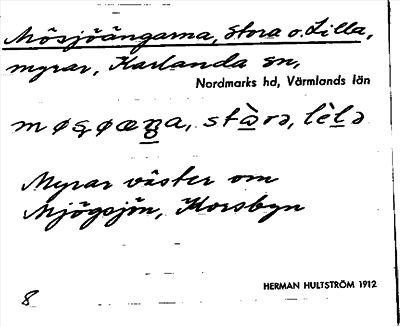 Mösjöängarna, Stora o. Lilla,
myrar, Karlanda sn,
Nordmarks hd, Värmlands län
Myrar väster om
Mjögsjön, Korsbyn
HERMAN HULTSTRÖM 1912
8